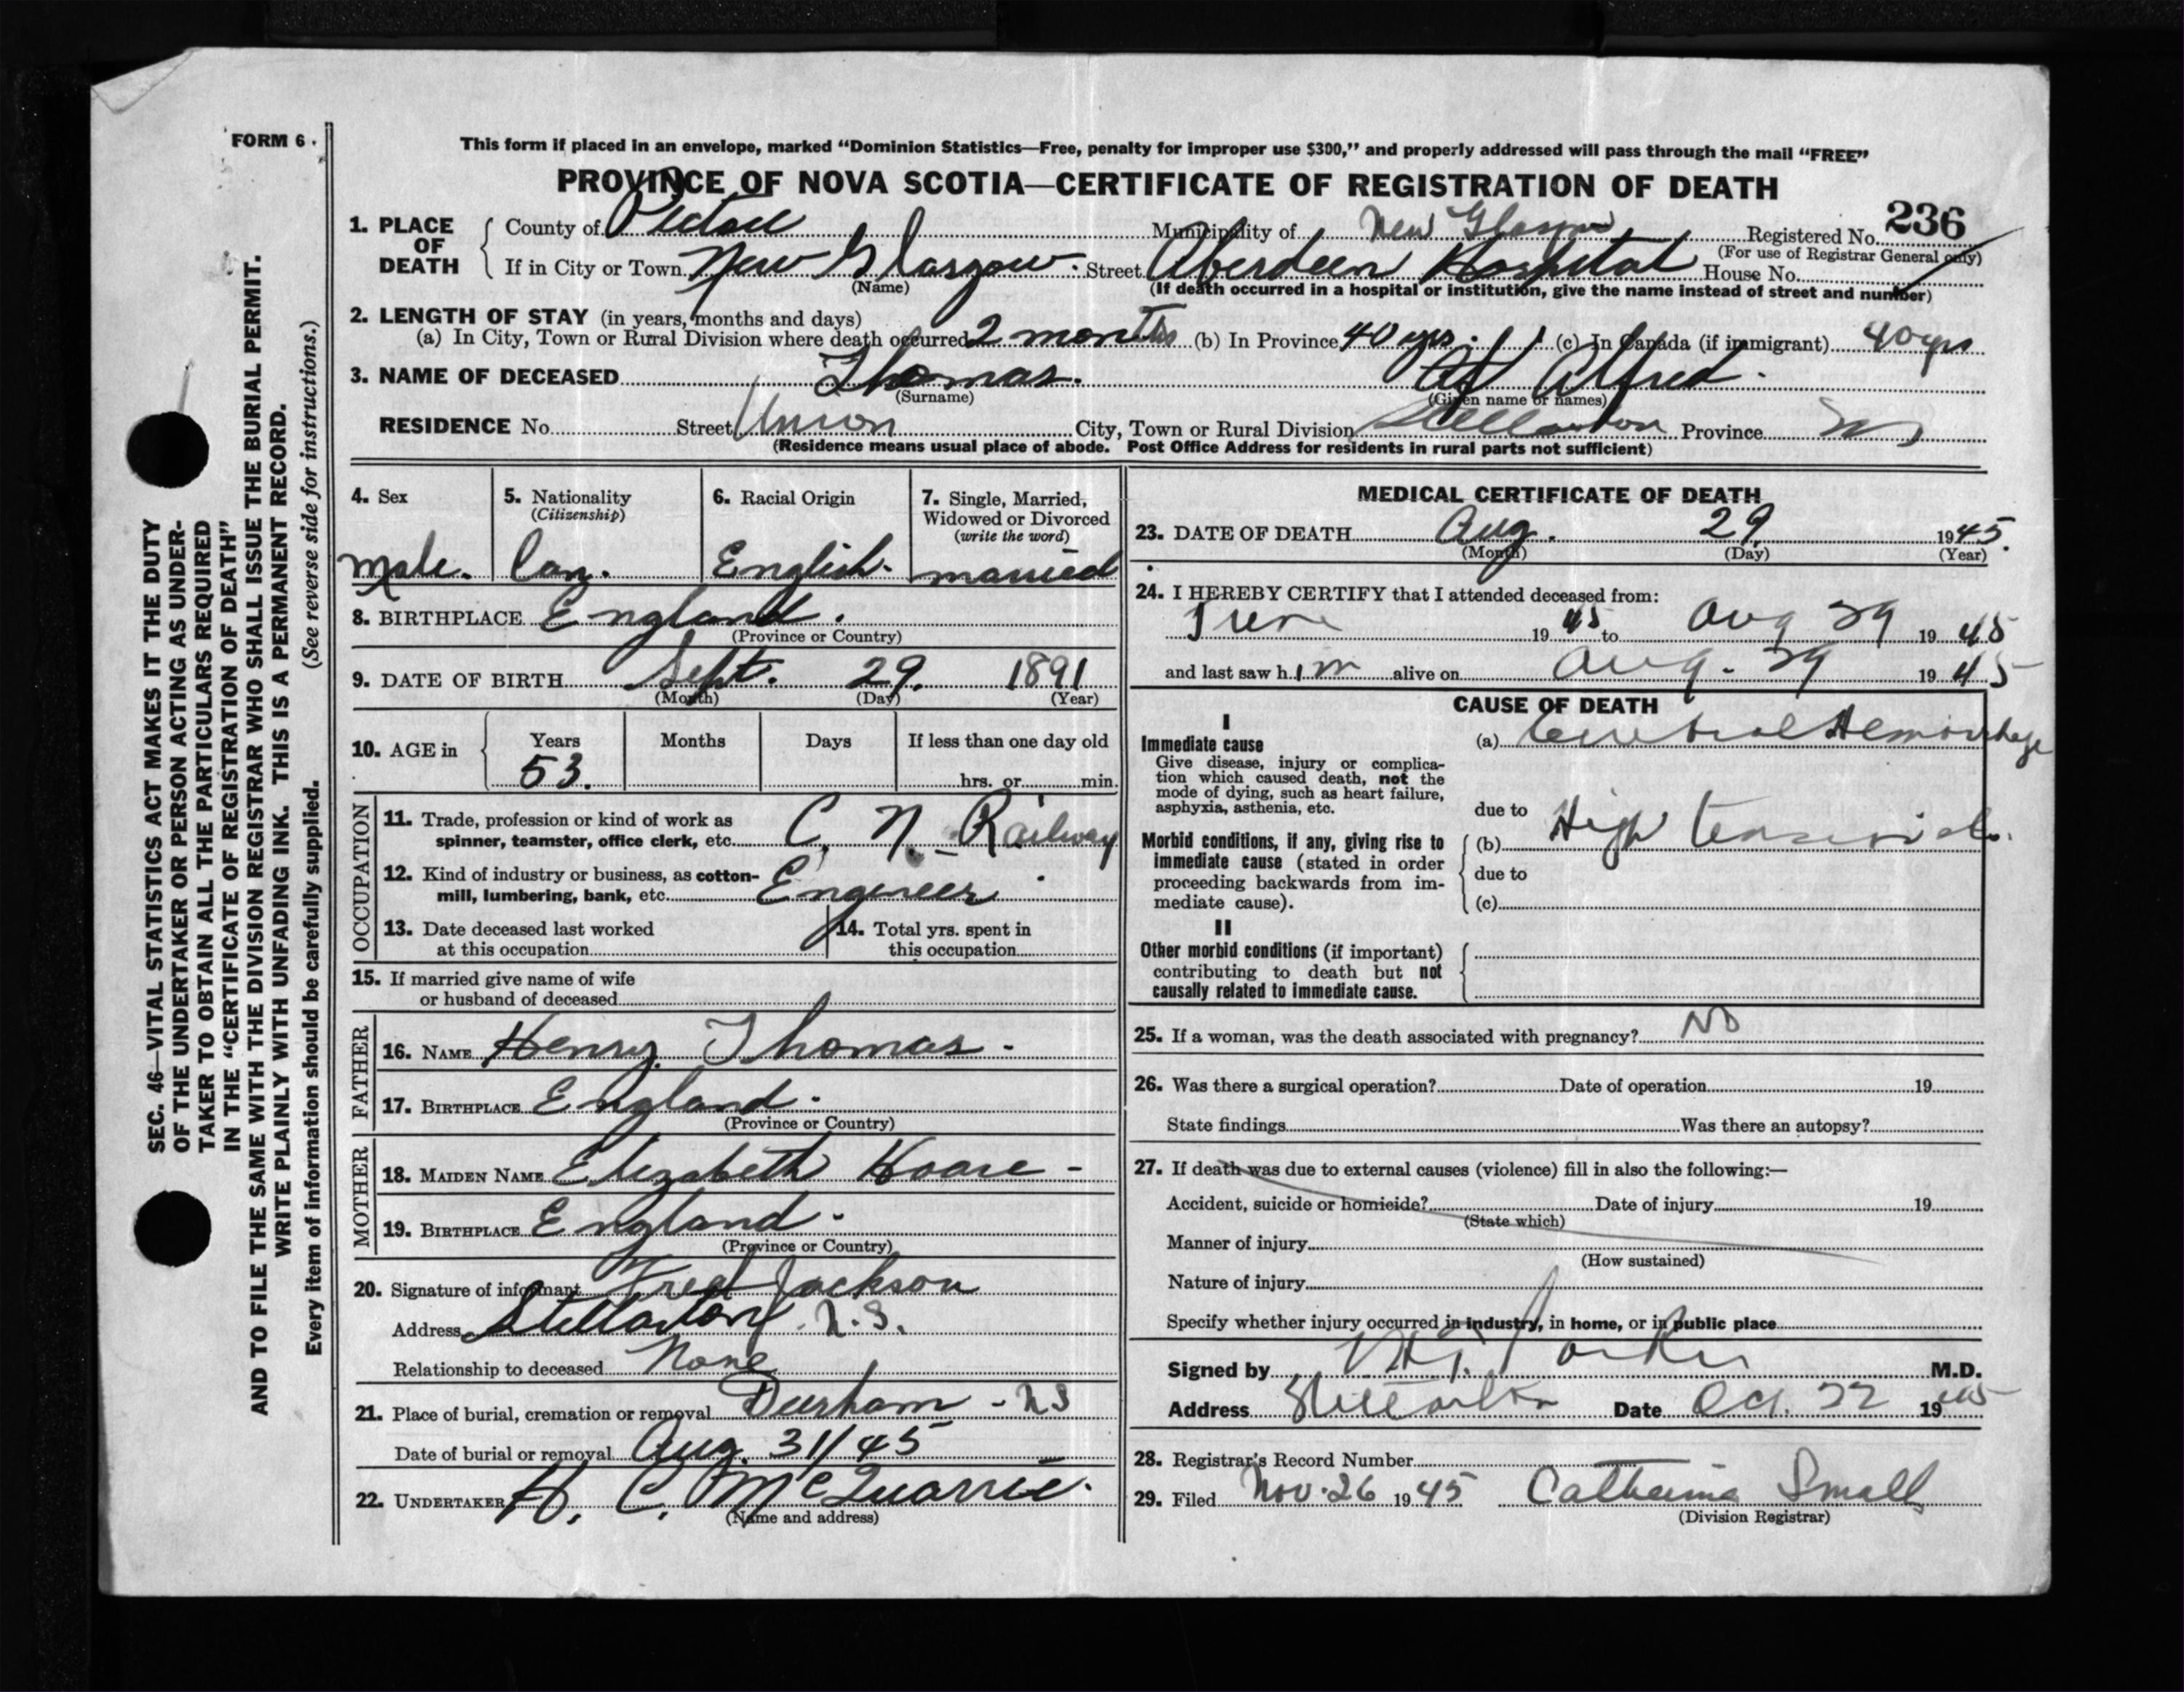 FORM 6.
This form if placed in an envelope, marked “Dominion Statistics—Free, penalty for improper use $300,” and properly addressed will pass through the mail “FREE”
PROVINCE OF NOVA SCOTIA—CERTIFICATE OF REGISTRATION OF DEATH
236
1. PLACE OF DEATH County of Pictou Municipality of New Glasgow Registered No.
(For use of Registrar General only)
If in City or Town New Glasgow. Street Aberdeen Hospital House No.
(Name) (If death occurred in a hospital or institution, give the name instead of street and number)
2. LENGTH OF STAY (in years, months and days)
(a) In City, Town or Rural Division where death occurred 2 months (b) In Province 40 yrs. (c) In Canada (if immigrant) 40 yrs
3. NAME OF DECEASED Thomas. Alfred.
(Surname) (Given name or names)
RESIDENCE No. Street Union City, Town or Rural Division Stellarton Province NS
(Residence means usual place of abode. Post Office Address for residents in rural parts not sufficient)
4. Sex
male.
5. Nationality
(Citizenship)
Can.
6. Racial Origin
English.
7. Single, Married,
Widowed or Divorced
(write the word)
married
8. BIRTHPLACE England.
(Province or Country)
9. DATE OF BIRTH Sept. 29. 1891
(Month) (Day) (Year)
10. AGE in Years Months Days If less than one day old
53. hrs. or min.
OCCUPATION
11. Trade, profession or kind of work as
spinner, teamster, office clerk, etc. C. N. Railway
12. Kind of industry or business, as cotton-
mill, lumbering, bank, etc. Engineer
13. Date deceased last worked
at this occupation
14. Total yrs. spent in
this occupation
15. If married give name of wife
or husband of deceased
FATHER
16. NAME Henry Thomas -
17. BIRTHPLACE England.
(Province or Country)
MOTHER
18. MAIDEN NAME Elizabeth Hoare -
19. BIRTHPLACE England.
(Province or Country)
20. Signature of informant Fred Jackson
Address Stellarton N.S.
Relationship to deceased None
21. Place of burial, cremation or removal Durham - NS
Date of burial or removal Aug. 31/45
22. UNDERTAKER H. C. McQuarrie.
(Name and address)
MEDICAL CERTIFICATE OF DEATH
23. DATE OF DEATH Aug. 29. 1945.
(Month) (Day) (Year)
24. I HEREBY CERTIFY that I attended deceased from:
June 19 45 to Aug 29 19 45
and last saw h im alive on Aug. 29 19 45
CAUSE OF DEATH
I
Immediate cause
Give disease, injury or complica-
tion which caused death, not the
mode of dying, such as heart failure,
asphyxia, asthenia, etc.
(a) Cerebral Hemorrhage
due to
Morbid conditions, if any, giving rise to
immediate cause (stated in order
proceeding backwards from im-
mediate cause).
(b) High
due to
(c)
II
Other morbid conditions (if important)
contributing to death but not
causally related to immediate cause.
25. If a woman, was the death associated with pregnancy? No
26. Was there a surgical operation? Date of operation 19
State findings Was there an autopsy?
27. If death was due to external causes (violence) fill in also the following:—
Accident, suicide or homicide? Date of injury 19
(State which)
Manner of injury
(How sustained)
Nature of injury
Specify whether injury occurred in industry, in home, or in public place
Signed by M.D.
Address Stellarton Date Oct. 22 1945
28. Registrar's Record Number
29. Filed Nov. 26 1945 Catherine Small
(Division Registrar)
SEC. 46—VITAL STATISTICS ACT MAKES IT THE DUTY
OF THE UNDERTAKER OR PERSON ACTING AS UNDER-
TAKER TO OBTAIN ALL THE PARTICULARS REQUIRED
IN THE “CERTIFICATE OF REGISTRATION OF DEATH”
AND TO FILE THE SAME WITH THE DIVISION REGISTRAR WHO SHALL ISSUE THE BURIAL PERMIT.
WRITE PLAINLY WITH UNFADING INK. THIS IS A PERMANENT RECORD.
Every item of information should be carefully supplied. (See reverse side for instructions.)